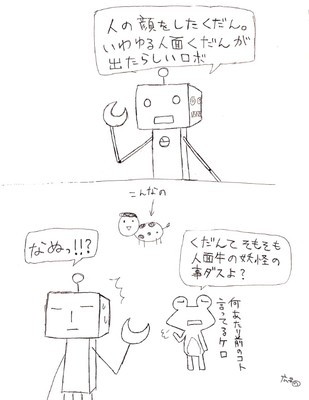 人の顔をしたくだん。
いわゆる人面くだんが
出たらしいロボ
こんなの
なぬっ!!?
くだんて そもそも
人面牛の妖怪の
事ダスよ?
何あたり前のコト
言ってるケロ